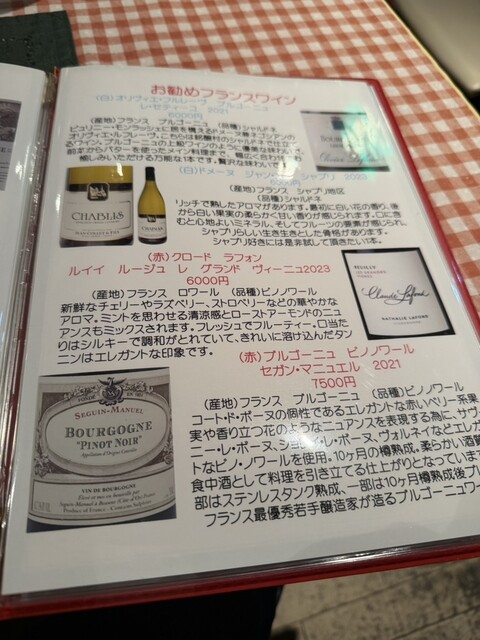 お勧めフランスワイン
(白)オリヴィエ・フレーヴ ブルゴーニュ
レ・セティーユ 2021
6000円
(産地)フランス ブルゴーニュ (品種)シャルドネ
(白)ドメーヌ ジャン・
(産地)フランス シャブリ地区
(品種)シャルドネ
リッチで熟したアロマがあります。最初に白い花の香り、後
から白い果実の柔らかく甘い香りが感じられます。口に含
むと心地よいミネラル、そしてフルーツの要素が感じられ、
シャブリらしい生き生きとした骨格があります。
シャブリ好きには是非試して頂きたい1本。
CHABLIS
CHABLIS
(赤)クロード ラフォン
ルイイ ルージュ レ グランド ヴィーニュ2023
6000円
(産地)フランス ロワール (品種)ピノノワール
新鮮なチェリーやラズベリー、ストロベリーなどの華やかな
アロマ。ミントを思わせる清涼感とローストアーモンドのニュ
アンスもミックスされます。フレッシュでフルーティー。口当た
りはシルキーで調和がとれていて、きれいに溶け込んだタン
ニンはエレガントな印象です。
REUILLY
Claude Lafond
NATHALIE LAFOND
(赤)ブルゴーニュ ピノノワール
セガン・マニュエル 2021
7500円
(産地)フランス ブルゴーニュ (品種)ピノノワール
コート・ド・ボーヌの個性であるエレガントな赤いベリー系果
実や香り立つ花のようなニュアンスを表現する為に、サヴィ
ニー・レ・ボーヌ、ショレイ・レ・ボーヌ、ヴォルネイなどエレガン
トなピノ・ノワールを使用。10ヶ月の樽熟成。柔らかい酒質
食中酒として料理を引き立てる仕上がりとなっています
部はステンレスタンク熟成、一部は10ヶ月樽熟成後ブレ
フランス最優秀若手醸造家が造るブルゴーニュワー
SEGUIN-MANUEL
BOURGOGNE
"PINOT NOIR"
Appellation d'Origine Contrôlée
VIN DE BOURGOGNE